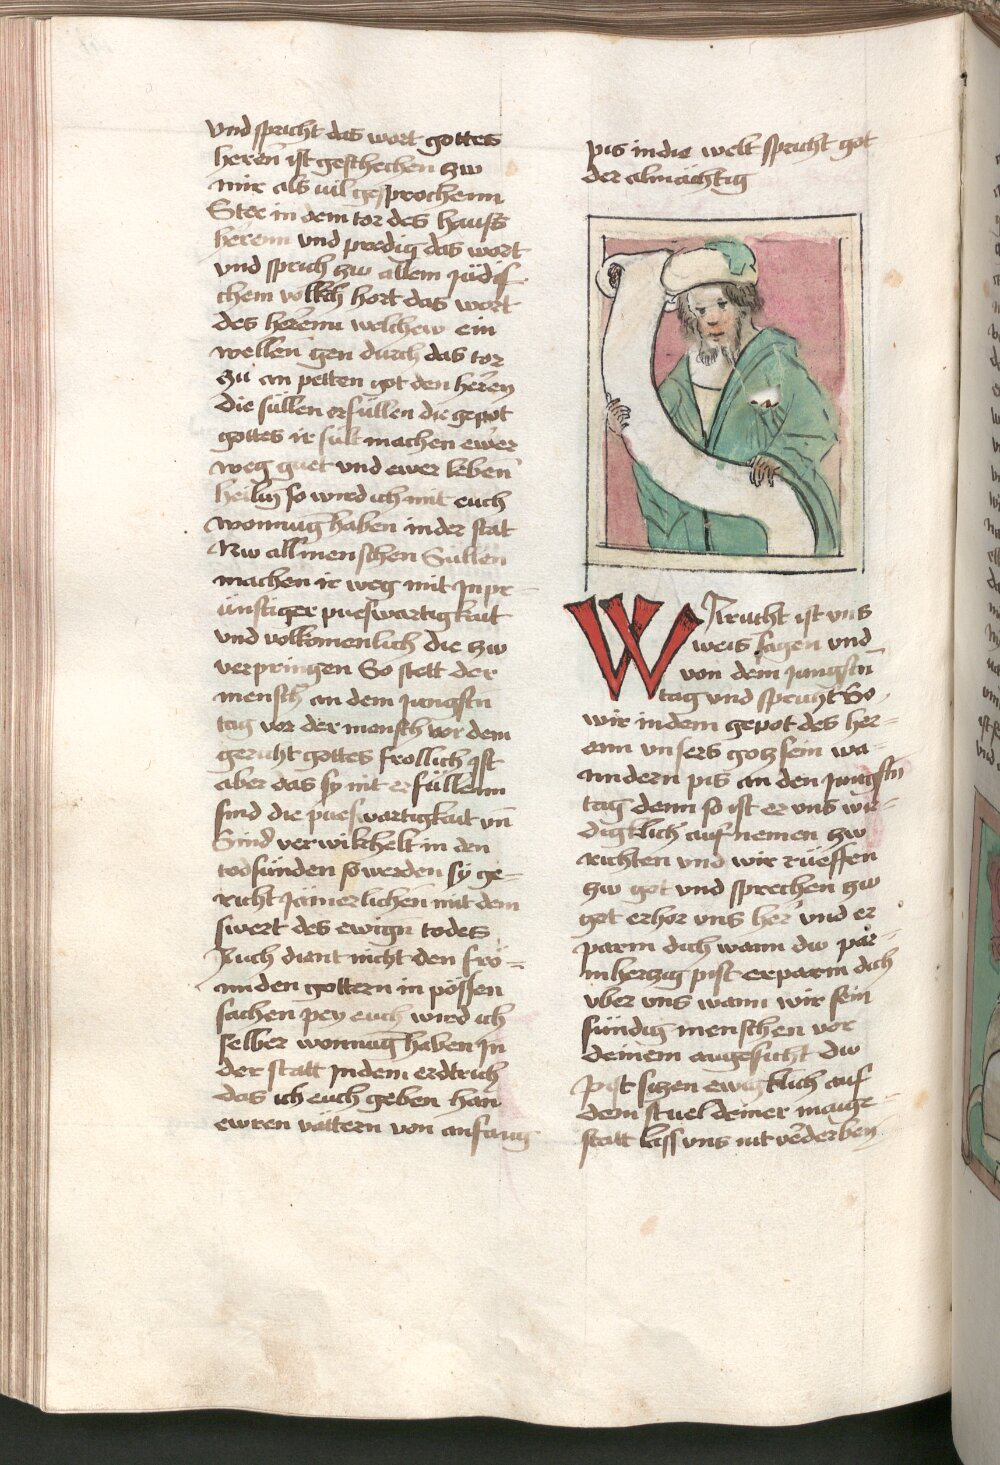 vnd spricht das wort gottes
heren ist geschechen zw
mir als vil gesprochenn
Stee in dem tor des hauss
herenn vnd predig das wort
vnd sprich zw allem Jüdis
chem volkch hort das wort
des herenn welchew ein
wellen gen durch das tor
zu an petten got den heren
die süllen erfüllen die gepot
gottes ir sült machen ewer
weg guet vnd ewer leben
heilig so wird ich mit euch
wonnug haben in der stat
Nw all menschen Süllen
machen ir weg mit Inpr-
ünstiger pueswartigkait
vnd volkomenlich die zw
verpringen So stett der
mensch an dem Jungstn
tag vor der mensch vor dem
gericht gottes frollich ist
aber das sy nit erfüllenn
sind die pueswartigkait vn
Sind verwikhelt in den
todsünden so werden sy ge-
richt Jämerlichen mit dem
swert des ewign todes
Auch dient nicht den frö-
mden gottern in pössen
sachen pey euch wird ich
selber wonnug haben In
der statt In dem erdtrich
das ich euch geben han
ewren vättern von anfang
pis in die welt spricht got
der almächtig
WAruch ist vns
weis sagen vnd
von dem Jungstn
tag vnd spricht So
wir in dem gepot des her-
enn vnsers gotz sein wa-
nndern pis an den Jungstn
tag denn so ist er vns wir-
digklich aufnemen zw
richten vnd wir rüeffen
zw got vnd sprechen zw
got erhor vns her vnd er
parm dich wann dw par-
mhertzig pist erparm dich
vber vns wann wir sein
sündig menschen vor
deinem angesicht dw
pist sizen ewigklich auf
dem stuel deiner maige-
statt lass vns nit verderben